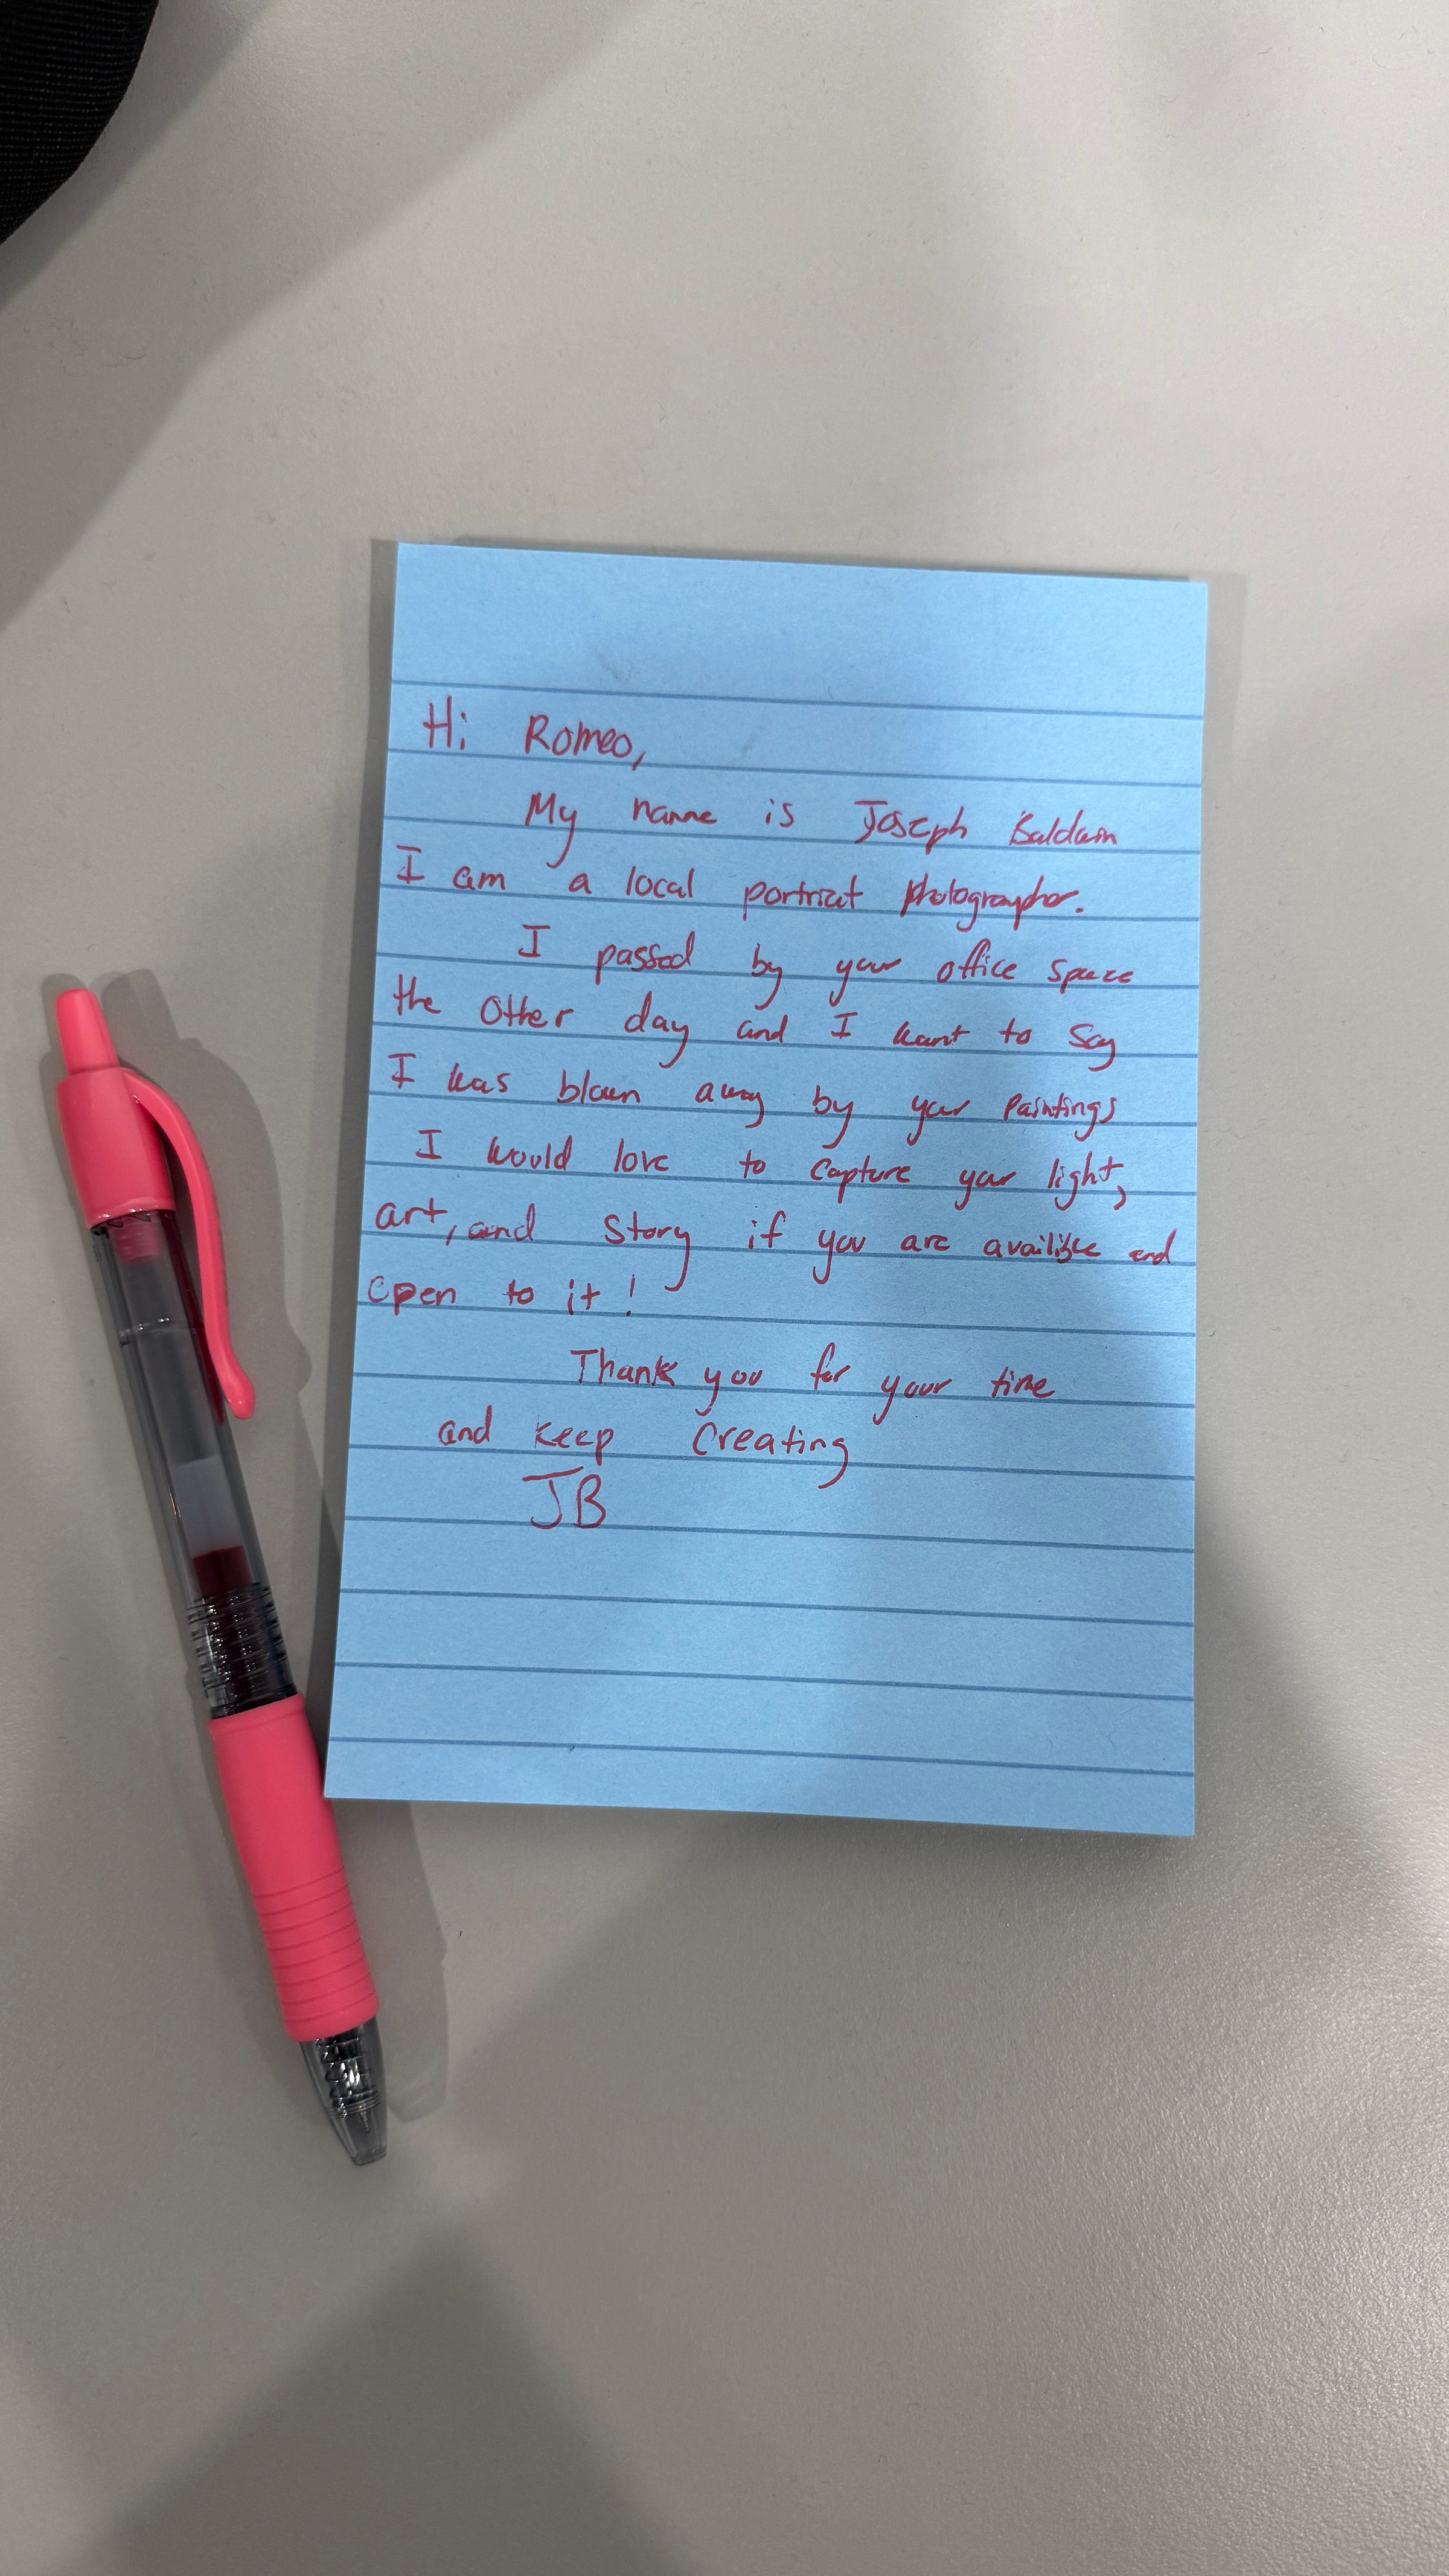 Hi Romeo,
My name is Joseph Baldwin
I am a local portriat photographer.
I passed by your office space
the other day and I want to say
I was blown away by your Paintings
I would love to capture your light,
art, and story if you are availible and
open to it!
Thank you for your time
and keep Creating
JB